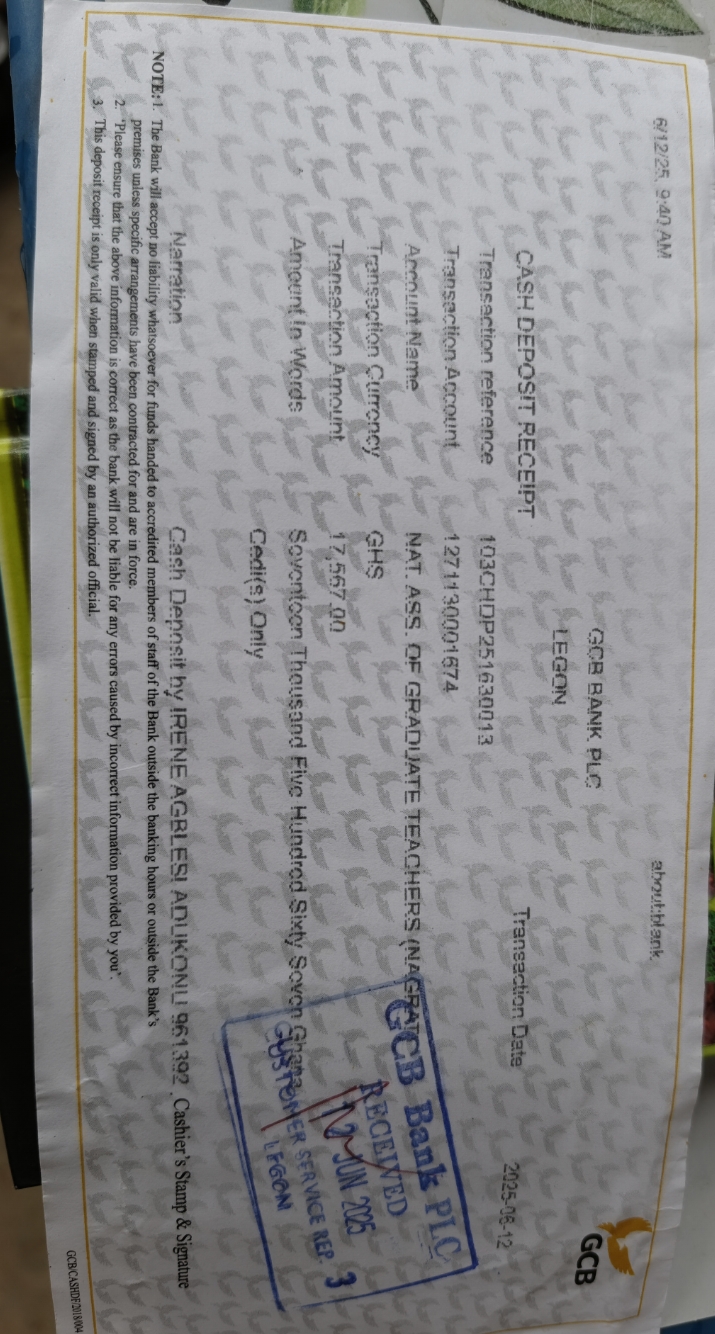 6/12/25, 9:40 AM
about:blank
GCB
GCB BANK PLC
LEGON
CASH DEPOSIT RECEIPT
Transaction Date 2025-06-12
Transaction reference 103CHDP251630013
Transaction Account 1271130001674
Account Name NAT. ASS. OF GRADUATE TEACHERS (NAGRAT
Transaction Currency GHS
Transaction Amount 17,567.00
Amount In Words Seventeen Thousand Five Hundred Sixty Seven Ghana
Cedi(s) Only
GCB Bank PLC
RECEIVED
12 JUN 2025
CUSTOMER SERVICE REP. 3
LEGON
Narration Cash Deposit by IRENE AGBLESI ADUKONU 961392 . Cashier's Stamp & Signature
NOTE: 1. The Bank will accept no liability whatsoever for funds handed to accredited members of staff of the Bank outside the banking hours or outside the Bank's
premises unless specific arrangements have been contracted for and are in force.
2. 'Please ensure that the above information is correct as the bank will not be liable for any errors caused by incorrect information provided by you'.
3. This deposit receipt is only valid when stamped and signed by an authorized official.
GCB/CASHDF/2018/004